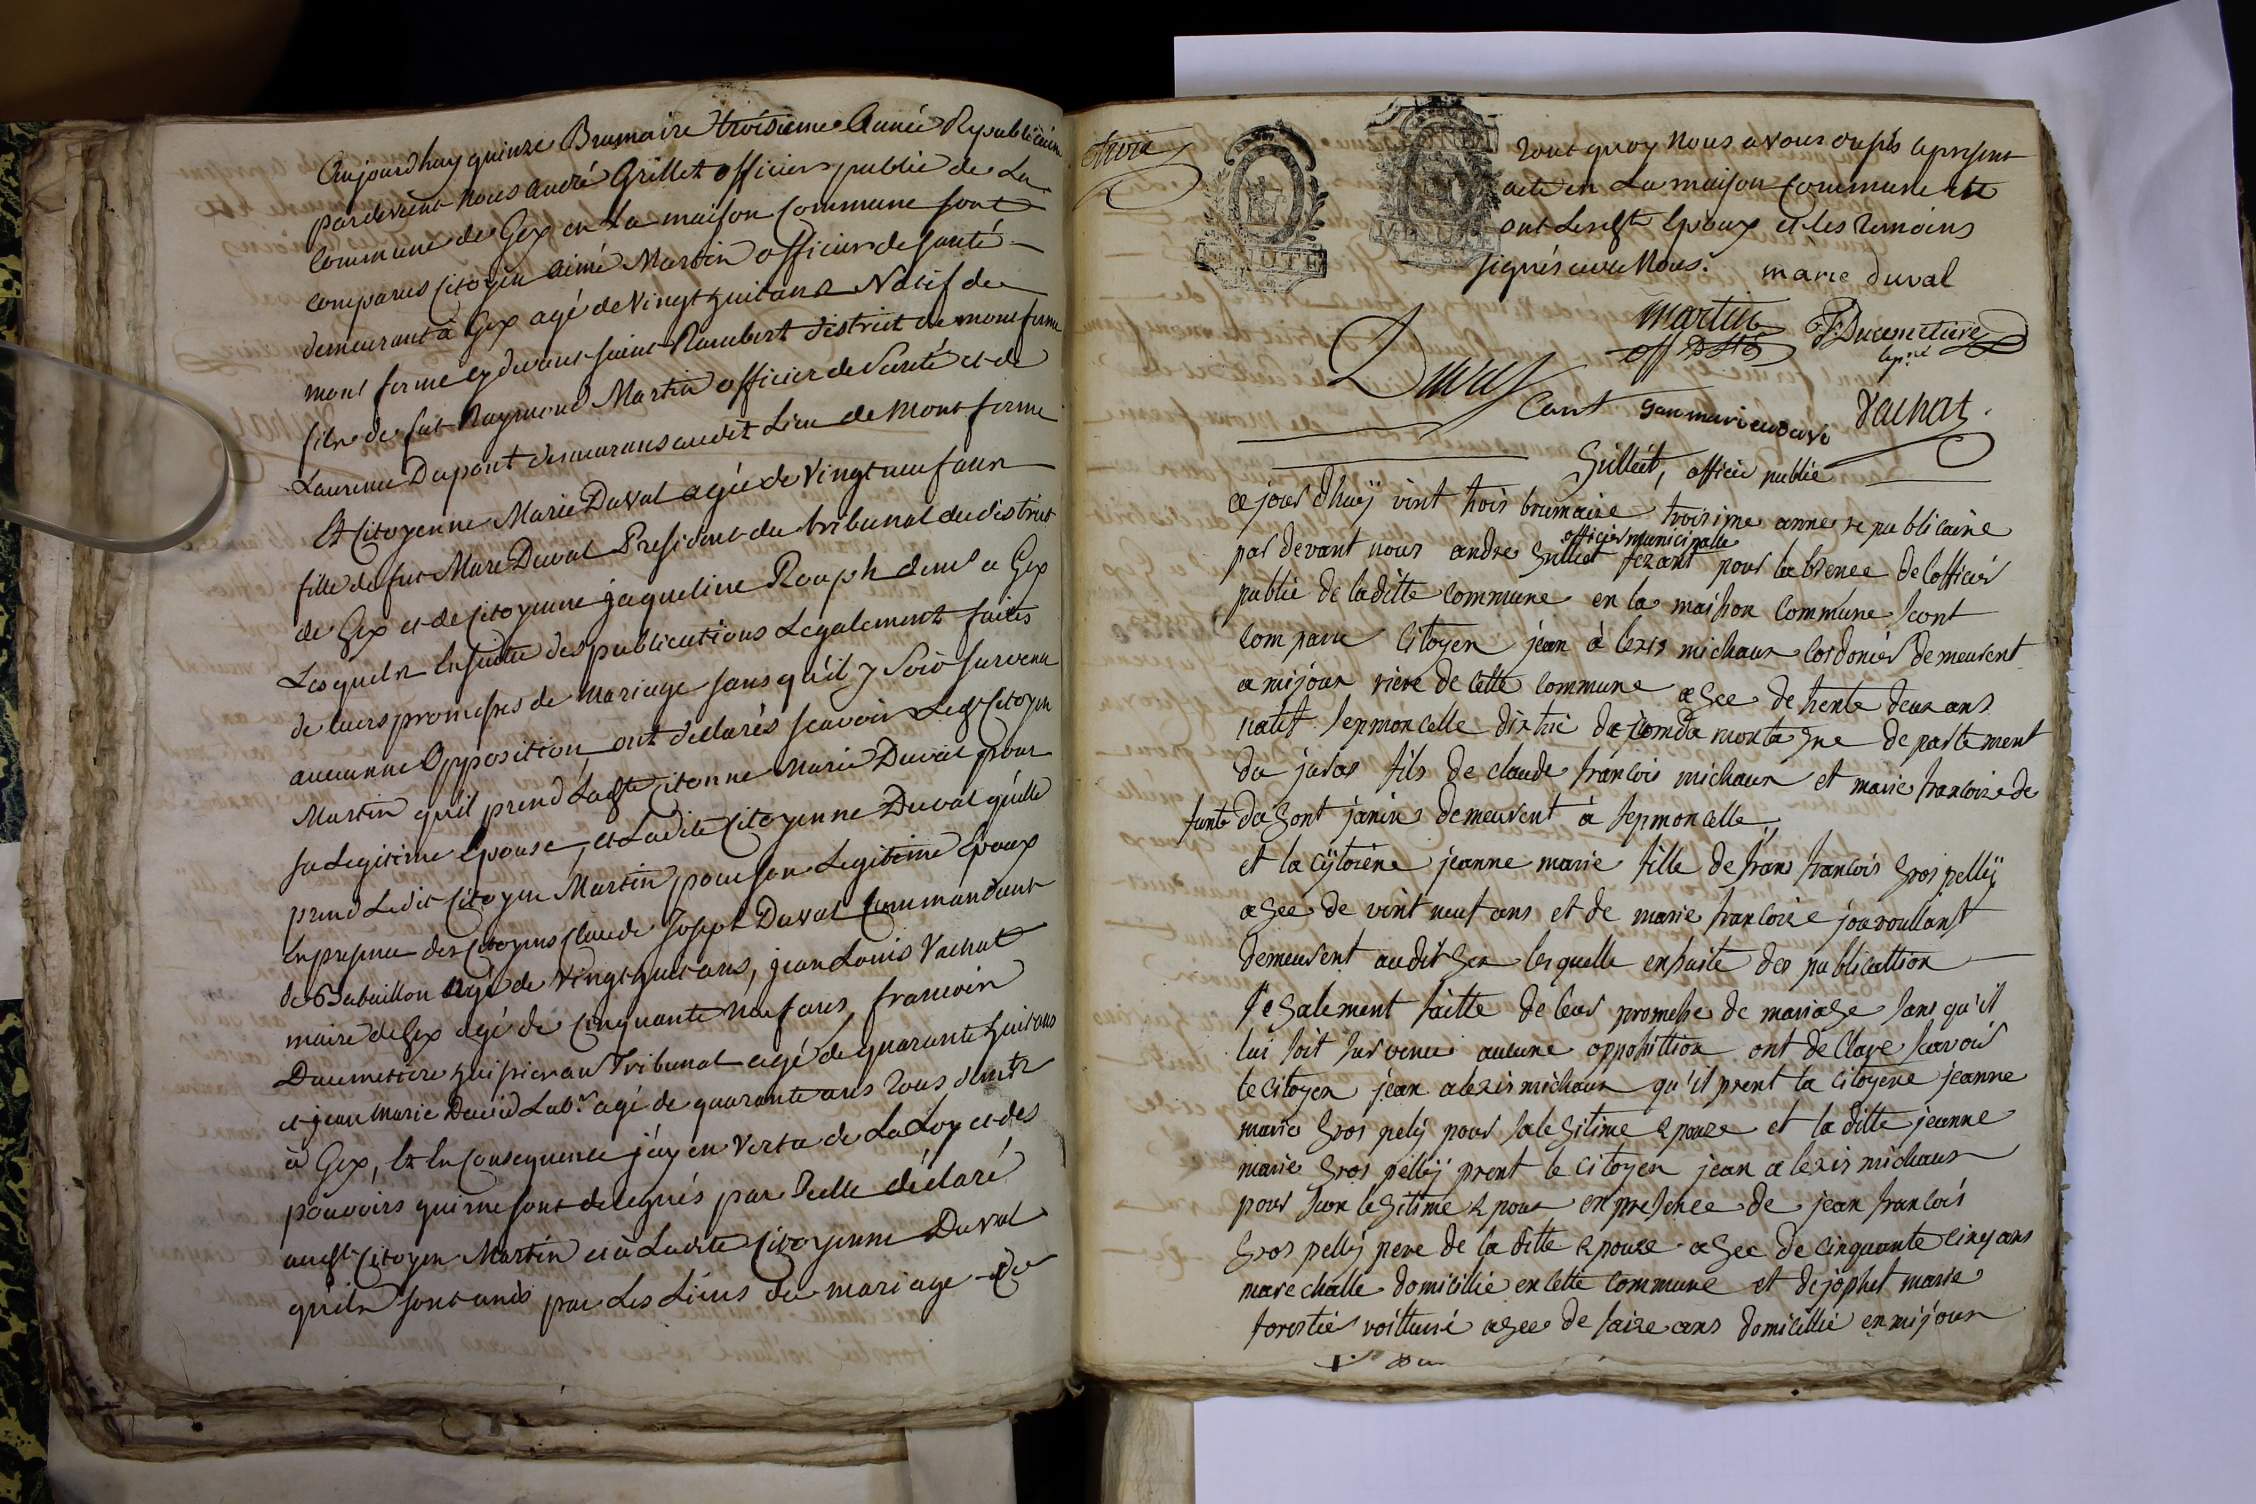 Aujourdhuy quinze Brumaire troisieme Année Republicaine
pardevant Nous André Grillet officier public de La
Commune de Gex en La maison Commune sont
comparus Citoyen Aimé Martin officier de santé
demeurant à Gex agé de Vingt huit ans Natif de
mont ferme cy devant Saint Rambert district de montferme
fils de fut Raymond Martin officier de Santé et de
Laurence Dupont demeurans audit Lieu de Mont ferme
Et Citoyenne Marie Duval agée de Vingt neuf ans
fille de fut Marc Duval President du tribunal du district
de Gex et de Citoyenne jaqueline Rouph demt a Gex
Lesquels Ensuitte des publications Legalement faites
de leurs promesses de Mariage sans qu'il y Soit survenu
aucunne Opposition, ont déclarés scavoir Ledt Citoyen
Martin qu'il prend Ladte Citoenne Marie Duval pour
sa Legitime Epouse, et Ladite Citoyenne Duval qu'elle
prend Ledit Citoyen Martin pour son Legitime Epoux
En presence des Citoyens Claude Joseph Duval Commandant
de Bataillon agé de Vingt huit ans, jean Louis Vachat
maire de Gex agé de Cinquante Neuf ans, francois
Ducimetiere huissier au Tribunal agé de quarante huit ans
et jean Marie David Labr agé de quarante ans Tous demts
à Gex, Et En Consequence j'ay en Vertu de La Loy et des
pouvoirs qui me sont delegués par Icelle déclaré
audt Citoyen Martin et à Ladite Citoyenne Duval
qu'ils sont unis par Les Liens du mariage De
trois
MINUTE
Tout quoy Nous avons dressés le present
acte en La maison Commune et
ont Lesdts Epoux et les Temoins
signés avec Nous.
marie duval
martin
off. D Sté
F. Ducimetiere
Duval
Cant
Jean marie david
Vachat
Grillet, officié publie
ce jourdhuÿ vint trois brumaire troisime anne republicaine
officier municipalle
par devant nous andre Grillet fezant pour labsence de lofficier
publié de laditte commune en la maison commune sont
comparu Citoyen jean à lexis michaux cordonier demeurent
a mijoux riere de cette commune agee de trente deux ans
natif sepmoncelle distric de comda montagne departement
du juras fils de claude francois michaux et marie francoize de
funte dagont janin demeurent à sepmoncelle
et la cÿtoiene jeanne marie fille de frans francois Gros pellÿ
agee de vint neuf ans et de marie francoise jouvoullant
demeurent audit Gex lesquelle ensuite des publicattion
légalement faitte de leur promesse de mariage sans qu'il
lui soit survenue aucune oppozittion ont de Clare scavoir
le citoyen jean alexis michaux qu'il prent la citoyene jeanne
marie Gros pelÿ pour sa legitime epouze et la ditte jeanne
marie Gros pellÿ prent le citoyen jean alexis michaux
pour son legitime epoux en presence de jean francois
Gros pellÿ pere de la ditte epouze agee de cinquante cinq ans
mare challe domicillie en cette commune et de jophet marie
forestier voiturié agee de saize ans domicillié en mijoux